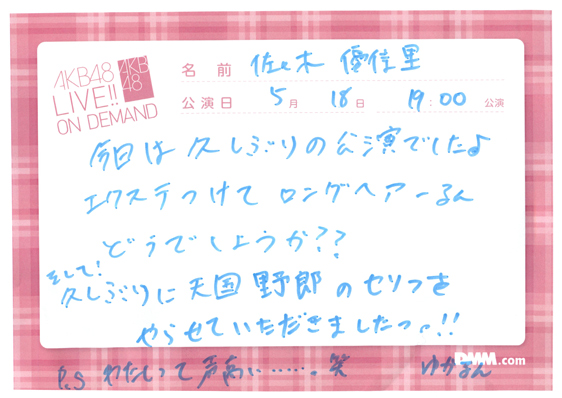 AKB48
LIVE!!
ON DEMAND
AKB
48
名前 佐々木 優佳里
公演日 5月 18日 19:00 公演
今日は久しぶりの公演でした♪
エクステつけてロングヘアーるん
どうでしょうか??
そして!
久しぶりに天国野郎のセリフを
やらせていただきましたっ。!!
P.S わたしって声高い……。笑 ゆかるん
DMM.com